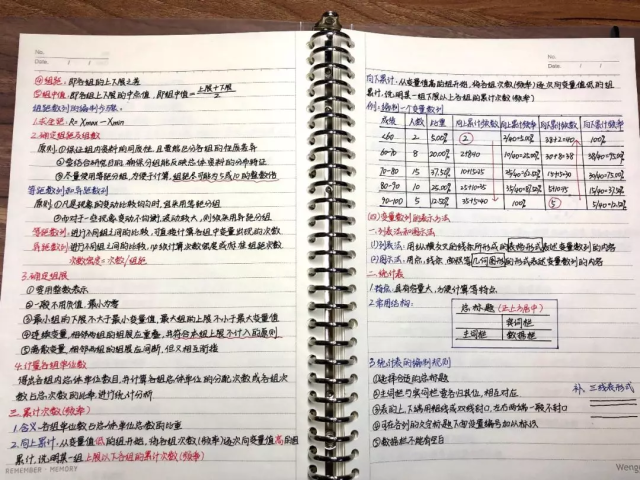 ④组距：即各组的上下限之差
⑤组中值：即各组上下限的中点值，即组中值=上限+下限/2
组距数列的编制步骤：
1.求全距：R=Xmax-Xmin
2.确定组距及组数
原则：①保证组内资料的同质性
②要结合研究目的，确保分组能反映总体资料的分布特征
③尽量使用等距分组，为便于计算，组距尽可能为5或10的整数倍
等距数列和异距数列
原则：①凡是现象的变动比较均匀时，宜采用等距分组
②而对于一些现象变动不均衡，波动较大，则须采用异距分组
等距数列：进行不同组之间的比较，可直接计算各组中变量出现的次数
异距数列：进行不同组之间的比较，必须计算次数密度或标准组距次数
次数密度=次数/组距
3.确定组限
①常用整数表示
②一般不用负值，最小为零
③最小组的下限不大于最小变量值，最大组的上限不小于最大变量值
④连续变量，相邻两组的组限应重叠，并符合本组上限不计入的原则
⑤离散变量，相邻两组的组限应间断，但又相互衔接
4.计算各组单位数
得出各组内总体单位数目，并计算各组总体单位的分配次数或各组次
数占总次数的比率，进行统计分析
三.累计次数(频率)
1.含义：各组单位数占总体单位总数的比重
2.向上累计：从变量值低的组开始，将各组次数(频率)逐次向变量值高的组
累计，说明某一组上限以下各组的累计次数(频率)
REMEMBER · MEMORY
No.
Date. / /
No.
Date. / /
向下累计：从变量值高的组开始，将各组次数(频率)逐次向变量值低的组
累计，说明某一组下限以上各组的累计次数(频率)
例：编制一个变量数列
成绩 人数 比重 向上累计频数 向上累计频率 向下累计次数 向下累计频率
<60 2 5.00% ② 2/40=5.00% 38+2=40 100%
60-70 8 20.00% 2+8=10 10/40=25.00% 30+8=38 38/40=95.00%
70-80 15 37.50% 10+15=25 25/40=62.50% 15+15=30 30/40=75.00%
80-90 10 25.00% 25+10=35 35/40=87.50% 5+10=15 15/40=37.50%
90-100 5 12.50% 35+5=40 100% ⑤ 5/40=12.50%
(四)变量数列的表示方法
一.列表法和图示法
(1)列表法：用纵横交叉的线条所形成的表格形式表述变量数列的内容
(2)图示法：用点、线条、面积等几何图形的形式表述变量数列的内容
二.统计表
1.特点：具有容量大，方便计算等特点
2.常用结构：
总标题(正上方居中)
宾词栏
主词栏 数据栏
3.统计表的编制规则
①选择合适的总标题
②主词栏与宾词栏要各归其位，相互对应
③表的上、下端用粗线或双线封口，左右两端一般不封口
⑤数据栏不能有空白
补：三线表形式